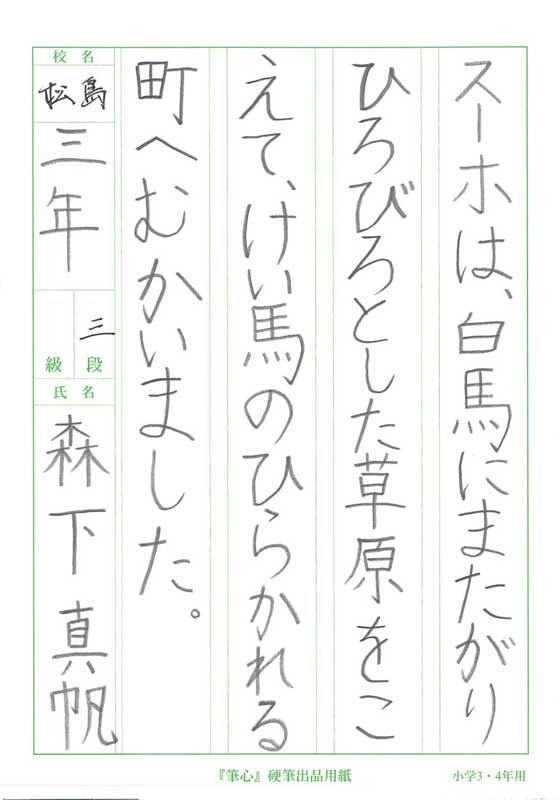 スーホは、白馬にまたがり
ひろびろとした草原をこ
えて、けい馬のひらかれる
町へむかいました。
校名
松島
三年
三
級 段
氏名
森下 真帆
『筆心』硬筆出品用紙
小学3・4年用